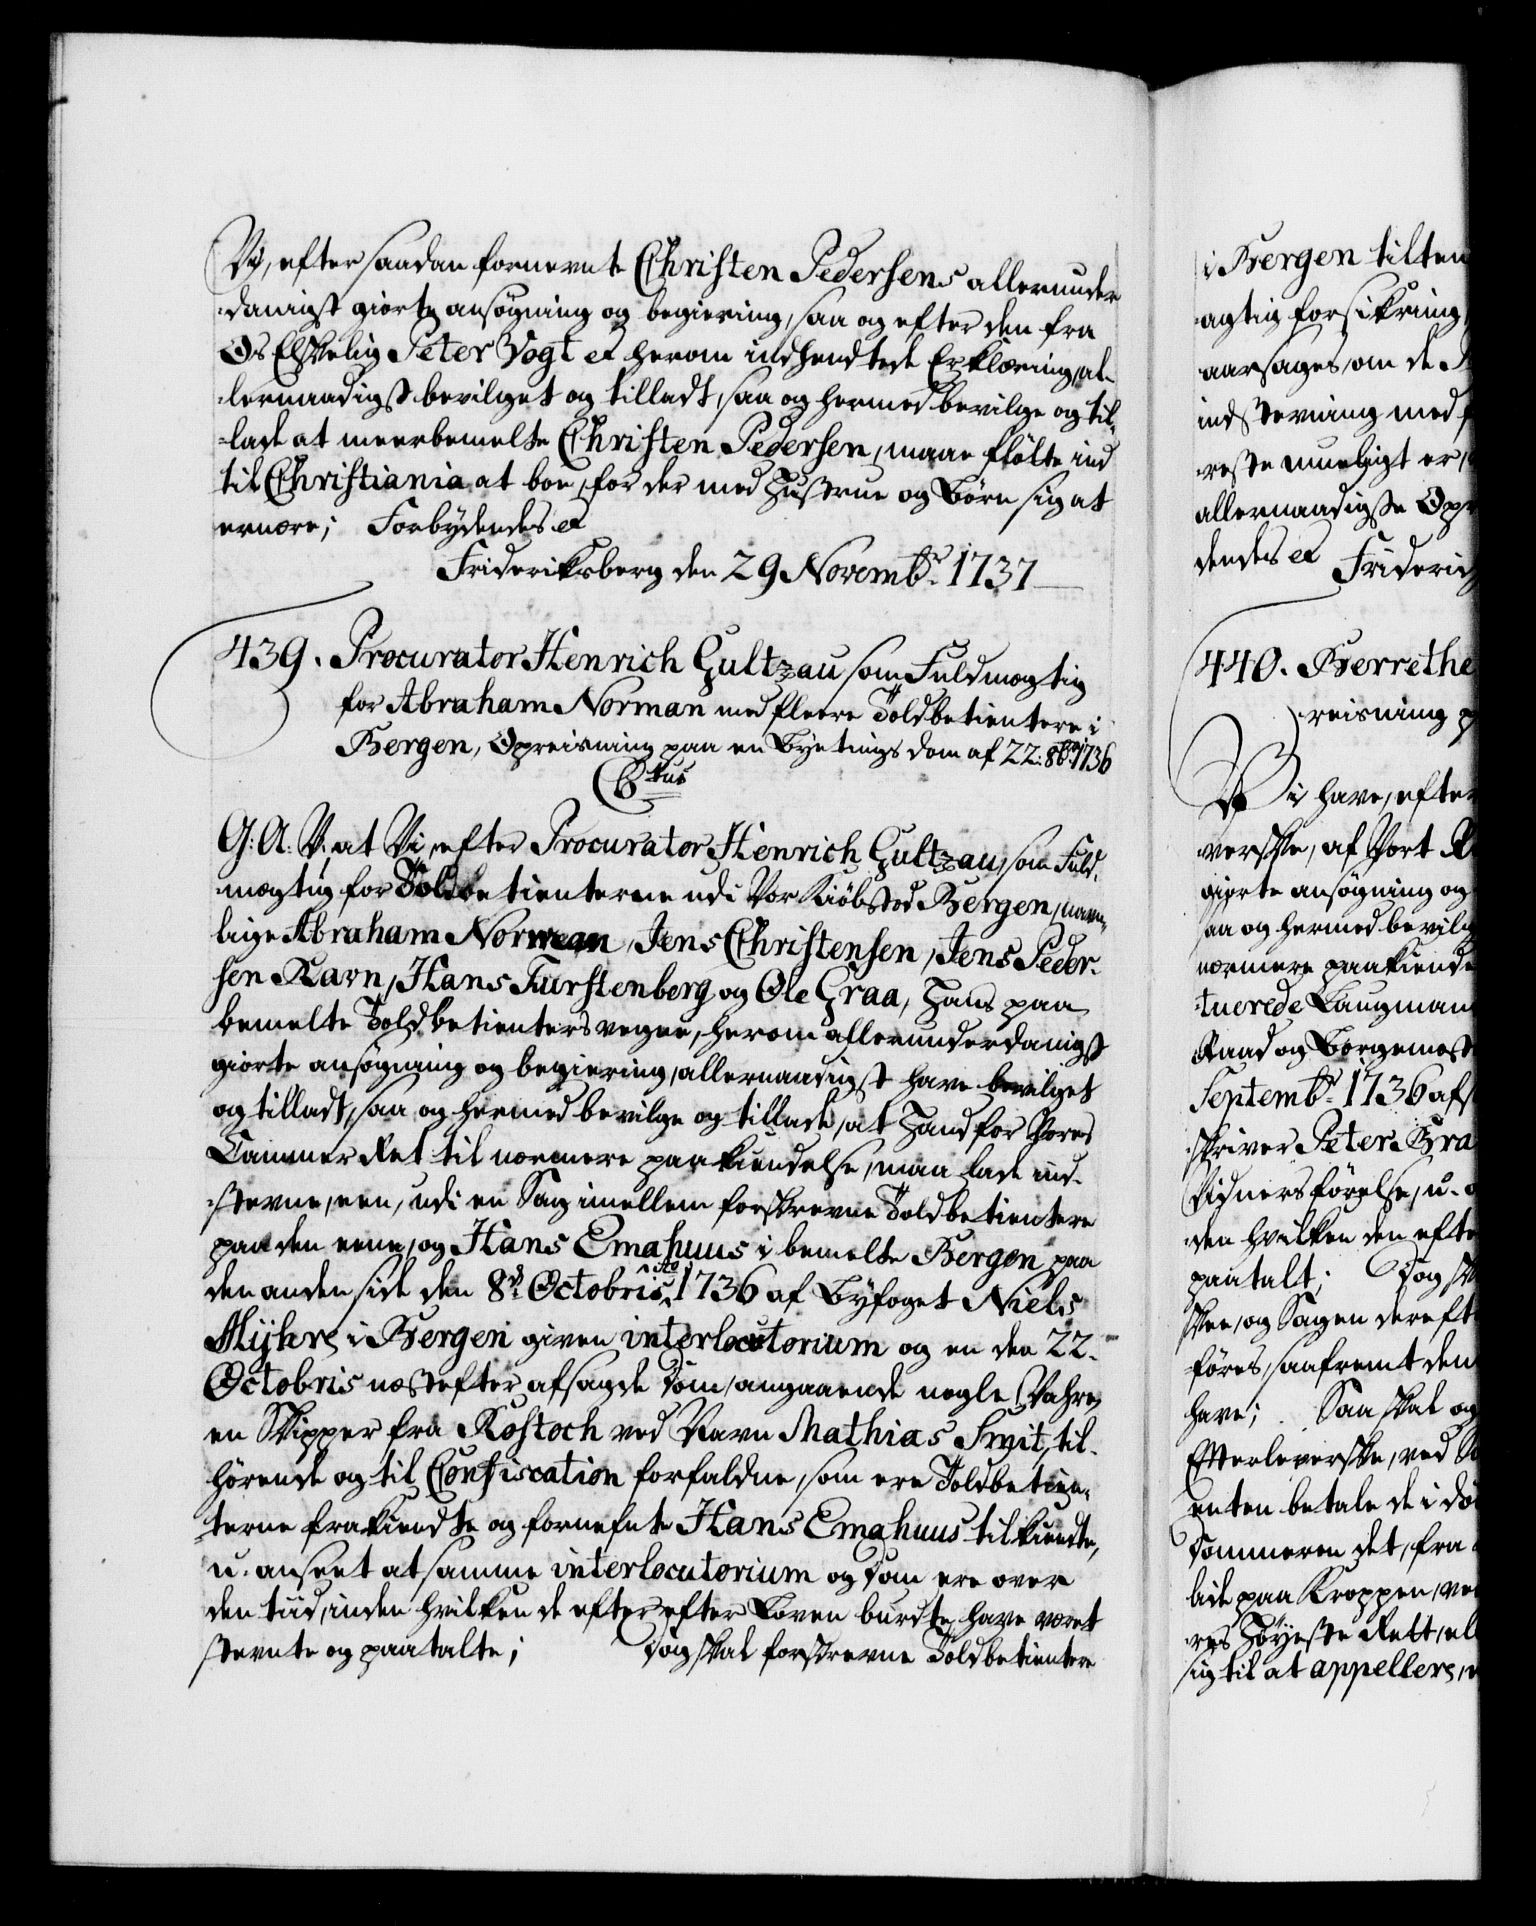 Vi, efter saadan fornevnte Christen Pedersens allerunder
danigst giorte ansøgning og begiering, saa og efter den fra
Os Elskelig Peter Vogt et herom indhendtede Erklæring, al-
lernaadigst bevilget og tilladt, saa og hermed bevilge og til-
lade at meerbemelte Christen Pedersen, maae flötte ind
til Christiania at boe, for der med Hustrue og Börn sig at
ernære; Forbydendes et
Frideriksberg den 29 Novembr. 1737
439. Procurator Henrich Gultzau som Fuldmægtig
for Abraham Norman med fleere Toldbetientere i
Bergen, Opreisning paa en Byetings dom af 22: 8br. 1736
G: A: V: at Vi, efter Procurator Henrich Gultzau, som Fuld-
mægtig for Toldbetienterne udi Vor Kiöbsted Bergen, navn-
lige Abraham Norman, Jens Christensen, Jens Peder-
sen Ravn, Hans Furstenberg og Ole Graa, Hans paa
bemelte Toldbetienters vegne, herom allerunderdanigst
giorte ansøgning og begiering, allernaadigst have bevilget
og tilladt, saa og hermed bevilge og tillade, at Hand for Vores
Cammer Ret til nærmere paakiendelse, maa lade ind-
stevne, een, udi en Sag imellem forskrevne Toldbetientere
paa den eene, og Hans Emahuus i bemelte Bergen paa
den anden side den 8de Octobris Ao 1736 af Byfoget Niels
Flyhrs i Bergen given interlocutorium og en den 22-
Octobris næstefter afsagde dom, angaaende nogle Vahre,
en Skipper fra Rostoch ved Navn Mathias Smit, til-
hørende og til Confiscation forfaldne, som ere Toldbetien-
terne frakiendte og fornefnte Hans Emahuus tilkiendte,
u-anseet at samme interlocutorium og dom ere over
den tiid, inden hvilken de efter efter Loven burdte have været
stevnte og paatalte; Dog skal forskrevne Toldbetientere
i Bergen tilten
agtig forsikring
aarsages, om de
indstevning med
reste mueligt er,
allernaadigste Opr
dendes et Frideric
440. Berrethe
reisning p
Vi have, efter
verske, af Vort R
giorte ansøgning og
saa og hermed bevilg
nærmere paakiende
tuerede Laugmand
Raad og Borgemest
Septembr. 1736 afs
skriver Peter Bra
Vidnersførelse, u-a
den hvilken den efte
paatalt; Dog sk
skee, og Sagen dereft
føres, saafremt den
have; Saa skal og
Efterleverske, ved
enten betale de i do
Dommeren det, fra
lide paa Kroppen, ve
res Höyeste Rett, el
sig til at appellere,